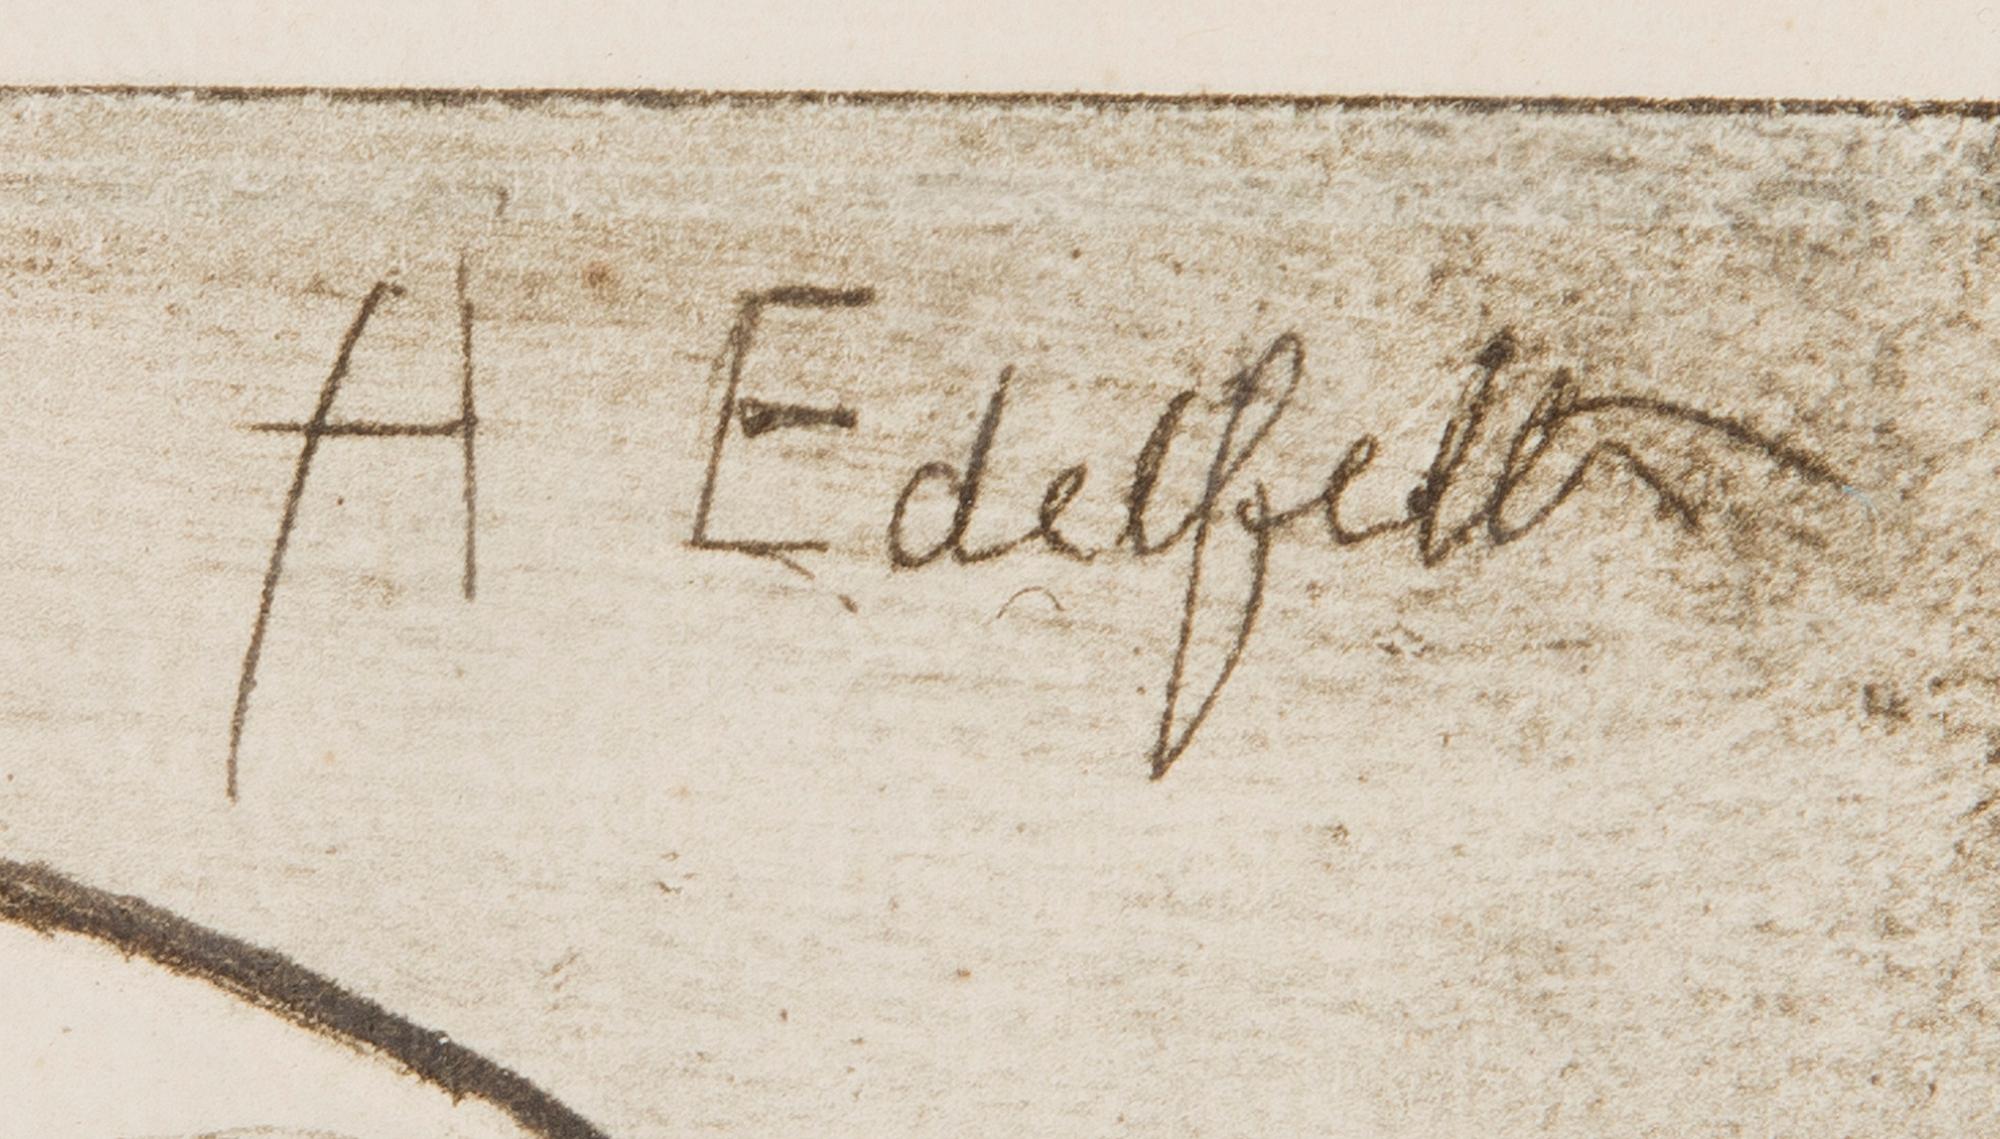 A Edelfelt